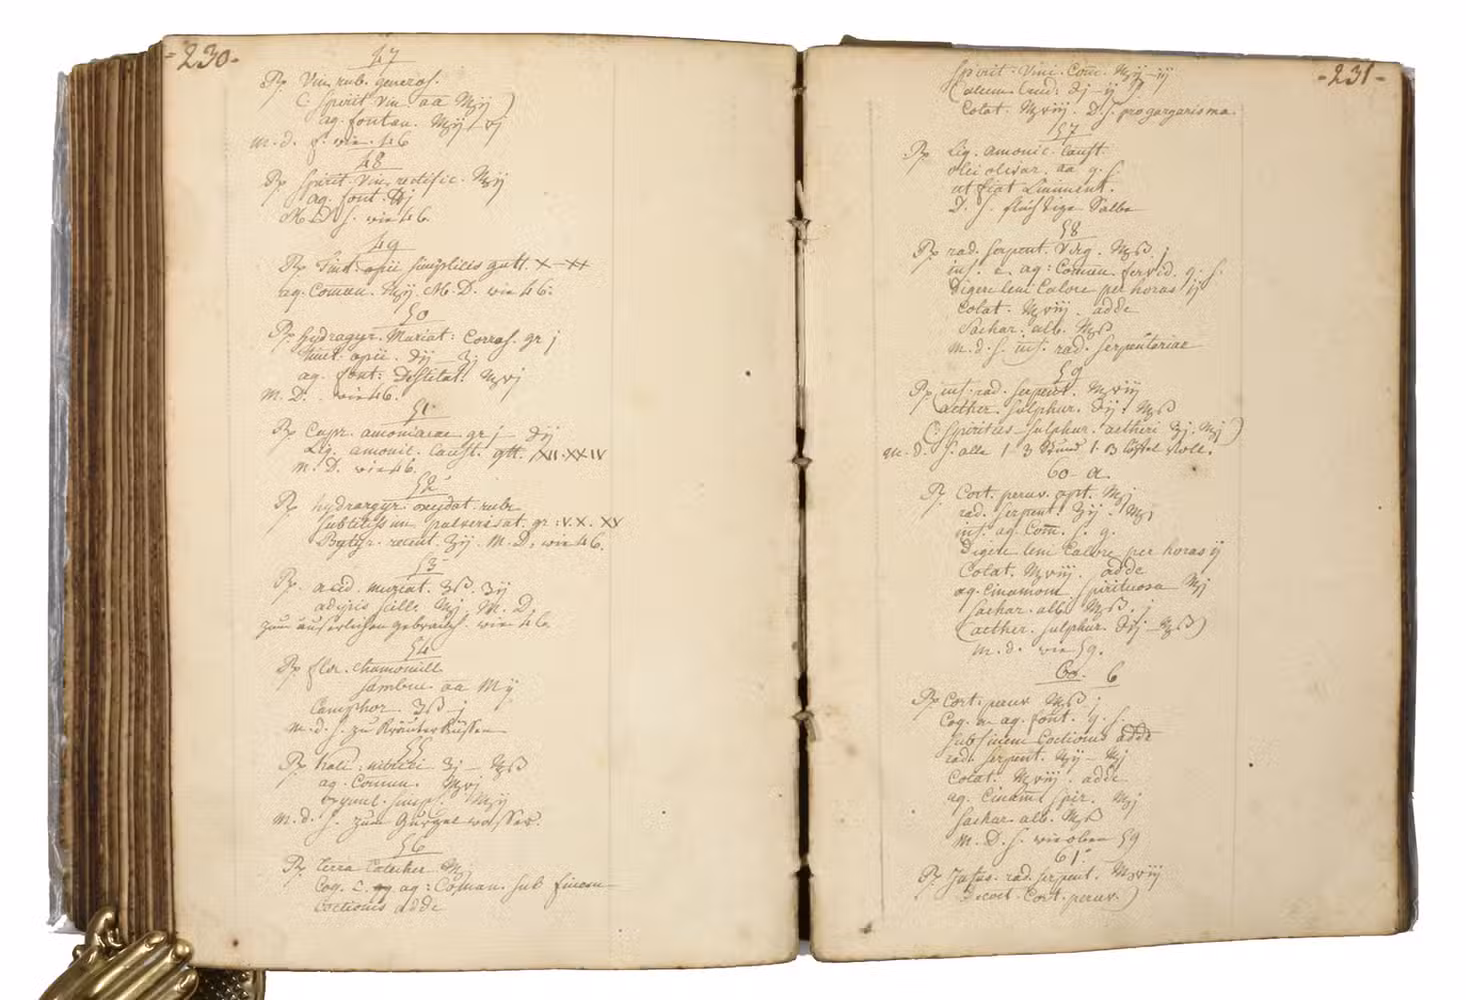 -230-
47
Rp Vin rub. generos.
C. Spirit Vin aa ℥ij )
aq. fontan. ℥ij - vj
m. d. s. wie 46
48
Rp Spirit Vin rectific. ℥ij
aq. font. ℥j
M. D. S. wie 46.
49
Rp Tinct. opii simplicis gutt. X - XX
aq. Coman. ℥ij. M. D. wie 46.
50
Rp hydragyr. Muriat: Corros. gr j
tinct. opii. ℈ij - ʒj
aq. font: Destilat. ℥vj
M. D. wie 46.
51
Rp Cupr. amoniacae gr j - ℈ij
Liq. amonic. Caust. gtt. XII. XXIV
M. D. wie 46.
52
Rp hydrargyr. oxydat. rubr
subtilissim pulverisat. gr: V. X. XV
Butyr. recent. ʒij. M. D. wie 46.
53
Rp. acid. muriat. ʒß. ʒij
M. D.
zum äuserlichen gebrauch. wie 46.
54
Rp flor. Chamomill
Sambuc. aa M ij
Camphor ʒß - j
m. d. s. zu Kräuter Küssen
55
Rp Kali: nitrici ʒj - ℥ß
aq. Comun. ℥vj
oxymel. simpl. ℥ij
m. d. S. zum Gurgelwasser.
56
Rp terra Catechu ℥j
Coq. c. aq: Coman. sub finem
Coctionis adde
-231-
Spirit. Vini Com. ℥j - ij
(Alum Crud: ℈j - ij )
Colat. ℥viij. D. S. pro gargarisma.
57
Rp Liq. amonic. Caust.
olei olivar. aa q. s.
ut fiat Liniment.
D. S. flüchtige Salbe
58
Rp rad. serpent. Virg. ℥ß. j
inf. c. aq: Comun. fervid. q. s.
Digere leni Calore per horas ij
Colat. ℥viij. adde
Sachar. alb. ℥ß
m. d. s. inf. rad. serpentariae
59
Rp inf. rad. serpent. ℥viij
(aether. sulphur. ℈ij. ℥ß
(Spiritus sulphur. aetheri ʒj. ℥j )
m. d. S. alle 1 3 Stund 1. 3 Löffel voll.
60 a.
Rp. Cort. peruv. opt. ℥j
rad. serpent. ʒij. ℥j
inf. aq. Com. s. q.
Digere leni Calore per horas ij
Colat. ℥viij. adde
aq. Cinamom spirituosa ℥j
Sachar. albi ℥ß. j
(aether. sulphur. ℈ij - ℥ß )
m. d. wie 59.
60. b
Rp Cort. peruv ℥ß j
Coq. c. aq. font. q. s.
sub finem Coctionis adde
rad. serpent. ʒij - ℥j
Colat. ℥viij. adde
aq. Cinam spir. ℥j
Sachar alb. ℥ß
M. D. S. wie oben 59
61.
Rp Infus. rad. serpent. ℥viij
Decoct. Cort. peruv. )